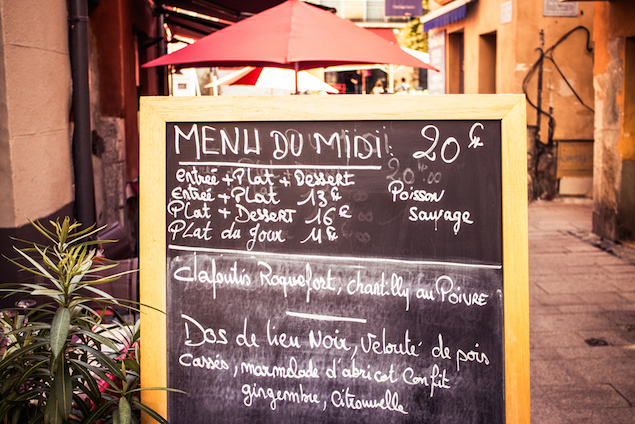 MENU DU MIDI 20 €
Entrée + Plat + Dessert
Entrée + Plat 13 €
Plat + Dessert 16 €
Plat du jour 11 €
Poisson
sauvage
Clafoutis Roquefort, chantilly au Poivre
Dos de lieu Noir, Velouté de pois
Cassés, marmelade d'abricot Confit
gingembre, Citronnelle